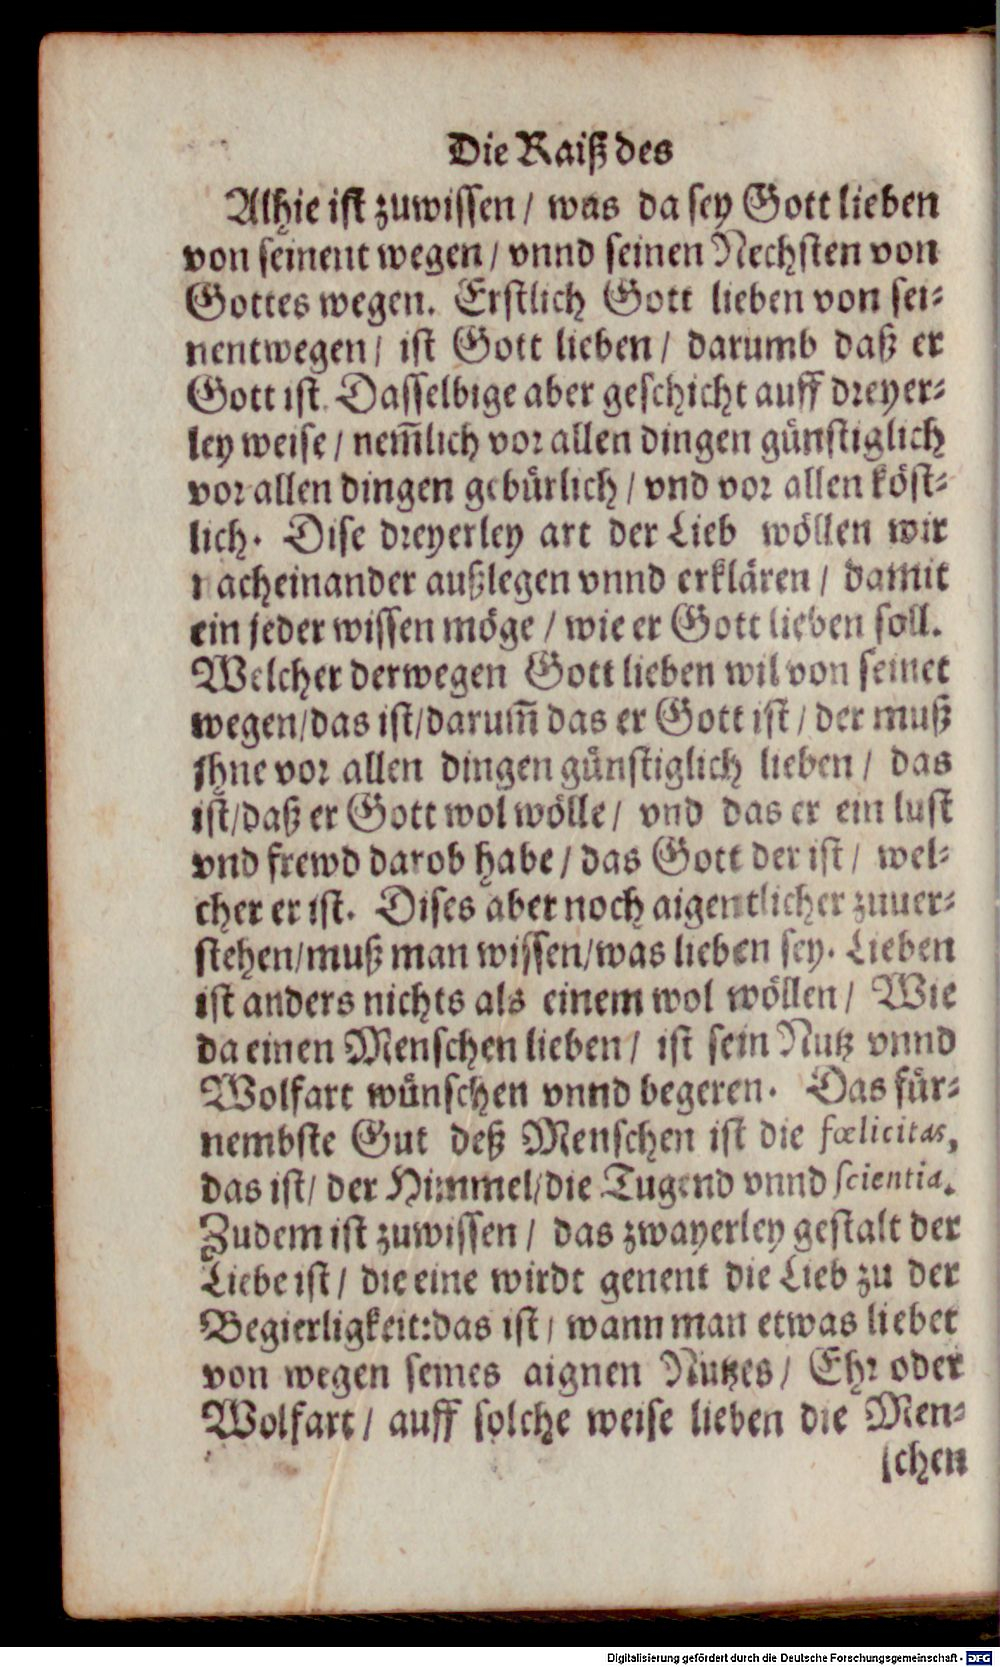 Die Raiß des
Alhie ist zuwissen / was da sey Gott lieben
von seinent wegen / vnnd seinen Nechsten von
Gottes wegen. Erstlich Gott lieben von sei-
nentwegen / ist Gott lieben / darumb daß er
Gott ist. Dasselbige aber geschicht auff dreyer-
ley weise / nem̃lich vor allen dingen günstiglich
vor allen dingen gebürlich / vnd vor allen köst-
lich. Dise dreyerley art der Lieb wöllen wir
nacheinander außlegen vnnd erklären / damit
ein jeder wissen möge / wie er Gott lieben soll.
Welcher derwegen Gott lieben wil von seinet
wegen / das ist / darum̃ das er Gott ist / der muß
jhne vor allen dingen günstiglich lieben / das
ist / daß er Gott wol wölle / vnd das er ein lust
vnd frewd darob habe / das Gott der ist / wel-
cher er ist. Dises aber noch aigentlicher zuuer-
stehen / muß man wissen / was lieben sey. Lieben
ist anders nichts als einem wol wöllen / Wie
da einen Menschen lieben / ist sein Nutz vnnd
Wolfart wünschen vnnd begeren. Das für-
nembste Gut deß Menschen ist die fœlicitas,
das ist / der Himmel / die Tugend vnnd scientia.
Zudem ist zuwissen / das zwayerley gestalt der
Liebe ist / die eine wirdt genent die Lieb zu der
Begierligkeit: das ist / wann man etwas liebet
von wegen seines aignen Nutzes / Ehr oder
Wolfart / auff solche weise lieben die Men-
schen
Digitalisierung gefördert durch die Deutsche Forschungsgemeinschaft - DFG